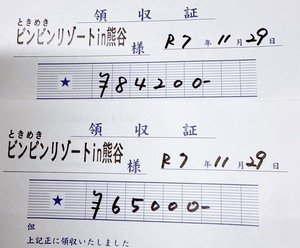 領収証
ときめき
ビンビンリゾートin熊谷
様 R7年11月29日
★ ¥84200-
領収証
ときめき
ビンビンリゾートin熊谷
様 R7年11月29日
★ ¥65000-
但
上記正に領収いたしました